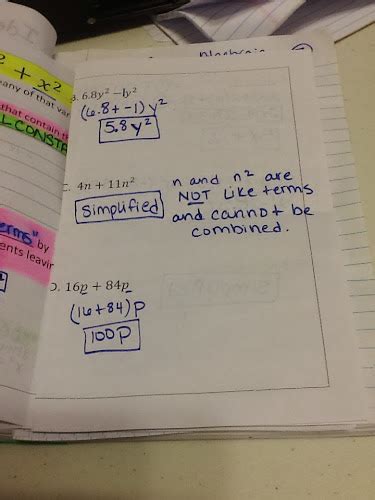 2 + x2
any of that var
that contain th
L CONSTA
erms" by
ents leavin
B. 6.8y² - 1y²
(6.8 + -1) y²
5.8 y²
C. 4n + 11n²
Simplified
n and n² are
NOT Like terms
and cannot be
combined.
D. 16p + 84p
(16+84)p
100p